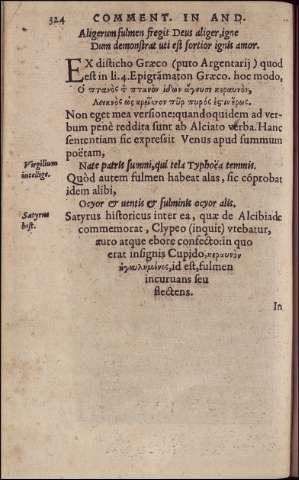 324 COMMENT. IN AND.
Aligerum fulmen fregit Deus aliger, igne
Dum demonstrat uti est fortior ignis amor.
EX disticho Græco (puto Argentarij) quod
est in li.4. Epigrāmaton Græco. hoc modo,
Ὁ πτανὸς τὸν πτανὸν ἰδὼν ἄγνυσι κεραυνὸν,
Δεικνὺς ὡς κρεῖσσον πῦρ πυρός ἐςιν ἔρως.
Non eget mea versione: quandoquidem ad ver-
bum penè reddita sunt ab Alciato verba. Hanc
sententiam sic expressit Venus apud summum
poëtam,
Virgilium
intellige.
Nate patris summi, qui tela Typhoëa temnis.
Quòd autem fulmen habeat alas, sic cōprobat
idem alibi,
Ocyor & uentis & fulminis ocyor alis.
Satyrus
hist.
Satyrus historicus inter ea, quæ de Alcibiade
commemorat, Clypeo (inquit) vtebatur,
auro atque ebore confecto: in quo
erat insignis Cupido, κεραυνὸν
ἠγκυλημένος, id est, fulmen
incuruans seu
flectens.
In